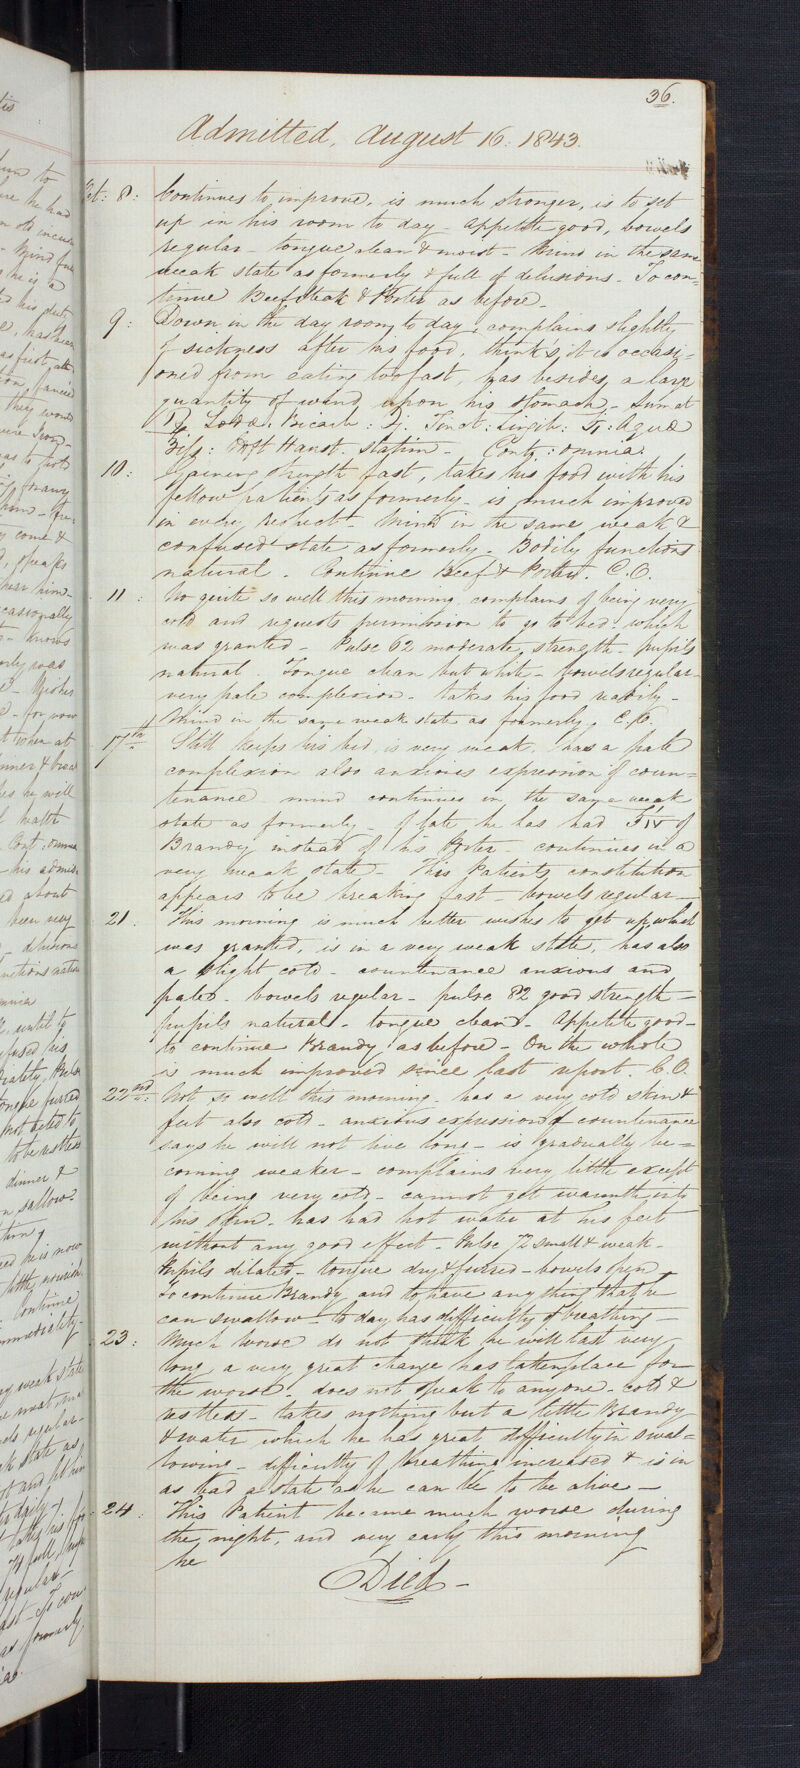 36.
Admitted, August 16. 1843.
Oct: 8: Continues to improve, is much stronger, is to get
up in his room to day appetite good, bowels
regular - tongue clean & moist - Mind in the same
weak state as formerly & full of delusions - To con=
tinue Beefsteak & Porter as before -
9: Down in the day room to day, complains slightly
of sickness after his food, think's it is occasi=
oned from eating too fast, has besides a large
quantity of wind upon his stomach - Sumat
Rx Sodae Bicarb: Tinct: Zingib: Aquae
Haust. statim - Contr: omnia
10: Gaining strength fast, takes his food with his
fellow patients as formerly - is much improved
in every respect - Mind in the same weak &
confused state as formerly - Bodily functions
natural. Continue Beef & Porter. C.O.
11: No quite so well this morning complains of being very
cold and requests permission to go to bed which
was granted - Pulse 62 moderate strength - pupils
natural. Tongue clean but white - bowels regular -
very pale complexion - takes his food readily -
Mind in the same weak state as formerly. C.O.
17th Still keeps his bed, is very weak, has a pale
complexion also anxious expression of coun=
tenance mind continues in the same weak
state as formerly - Of late he has had ℥iv of
Brandy instead of his Porter - continues in a
very weak state - This Patients constitution
appears to be breaking fast - bowels regular -
21: This morning is much better wishes to get up, which
was granted, is in a very weak state, has also
a slight cold - countenance anxious and
pale - bowels regular - pulse 82 good strength -
pupils natural - tongue clean - Appetite good -
to continue Brandy as before - On the whole
is much improved since last report - C.O.
22nd: Not so well this morning - has a very cold skin &
feet also cold - anxious expression of countenance
says he will not live long - is gradually be=
coming weaker - complains very little except
of being very cold - cannot get warmth into
his skin - has had hot water at his feet
without any good effect - Pulse 72 small & weak -
Pupils dilated - tongue dry & furred - bowels open
To continue Brandy and to have any thing that he
can swallow - to day has difficulty of breathing -
23: Much worse do not think he will last very
long, a very great change has taken place for
the worse - does not speak to anyone - cold &
restless - takes nothing but a little Brandy
& water which he has great difficulty in swal=
lowing - difficulty of breathing increased & is in
as bad a state as he can be to be alive -
24: This Patient became much worse during
the night, and very early this morning
he
Died -